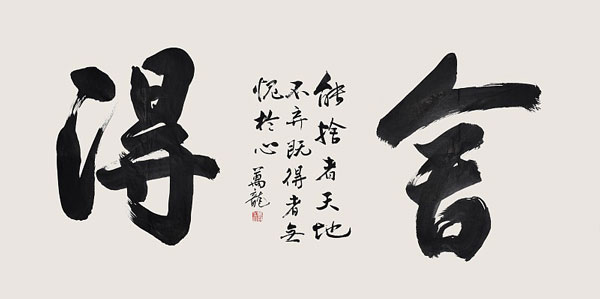 舍得
能捨者天地
不弃既得者無
愧於心
萬龍